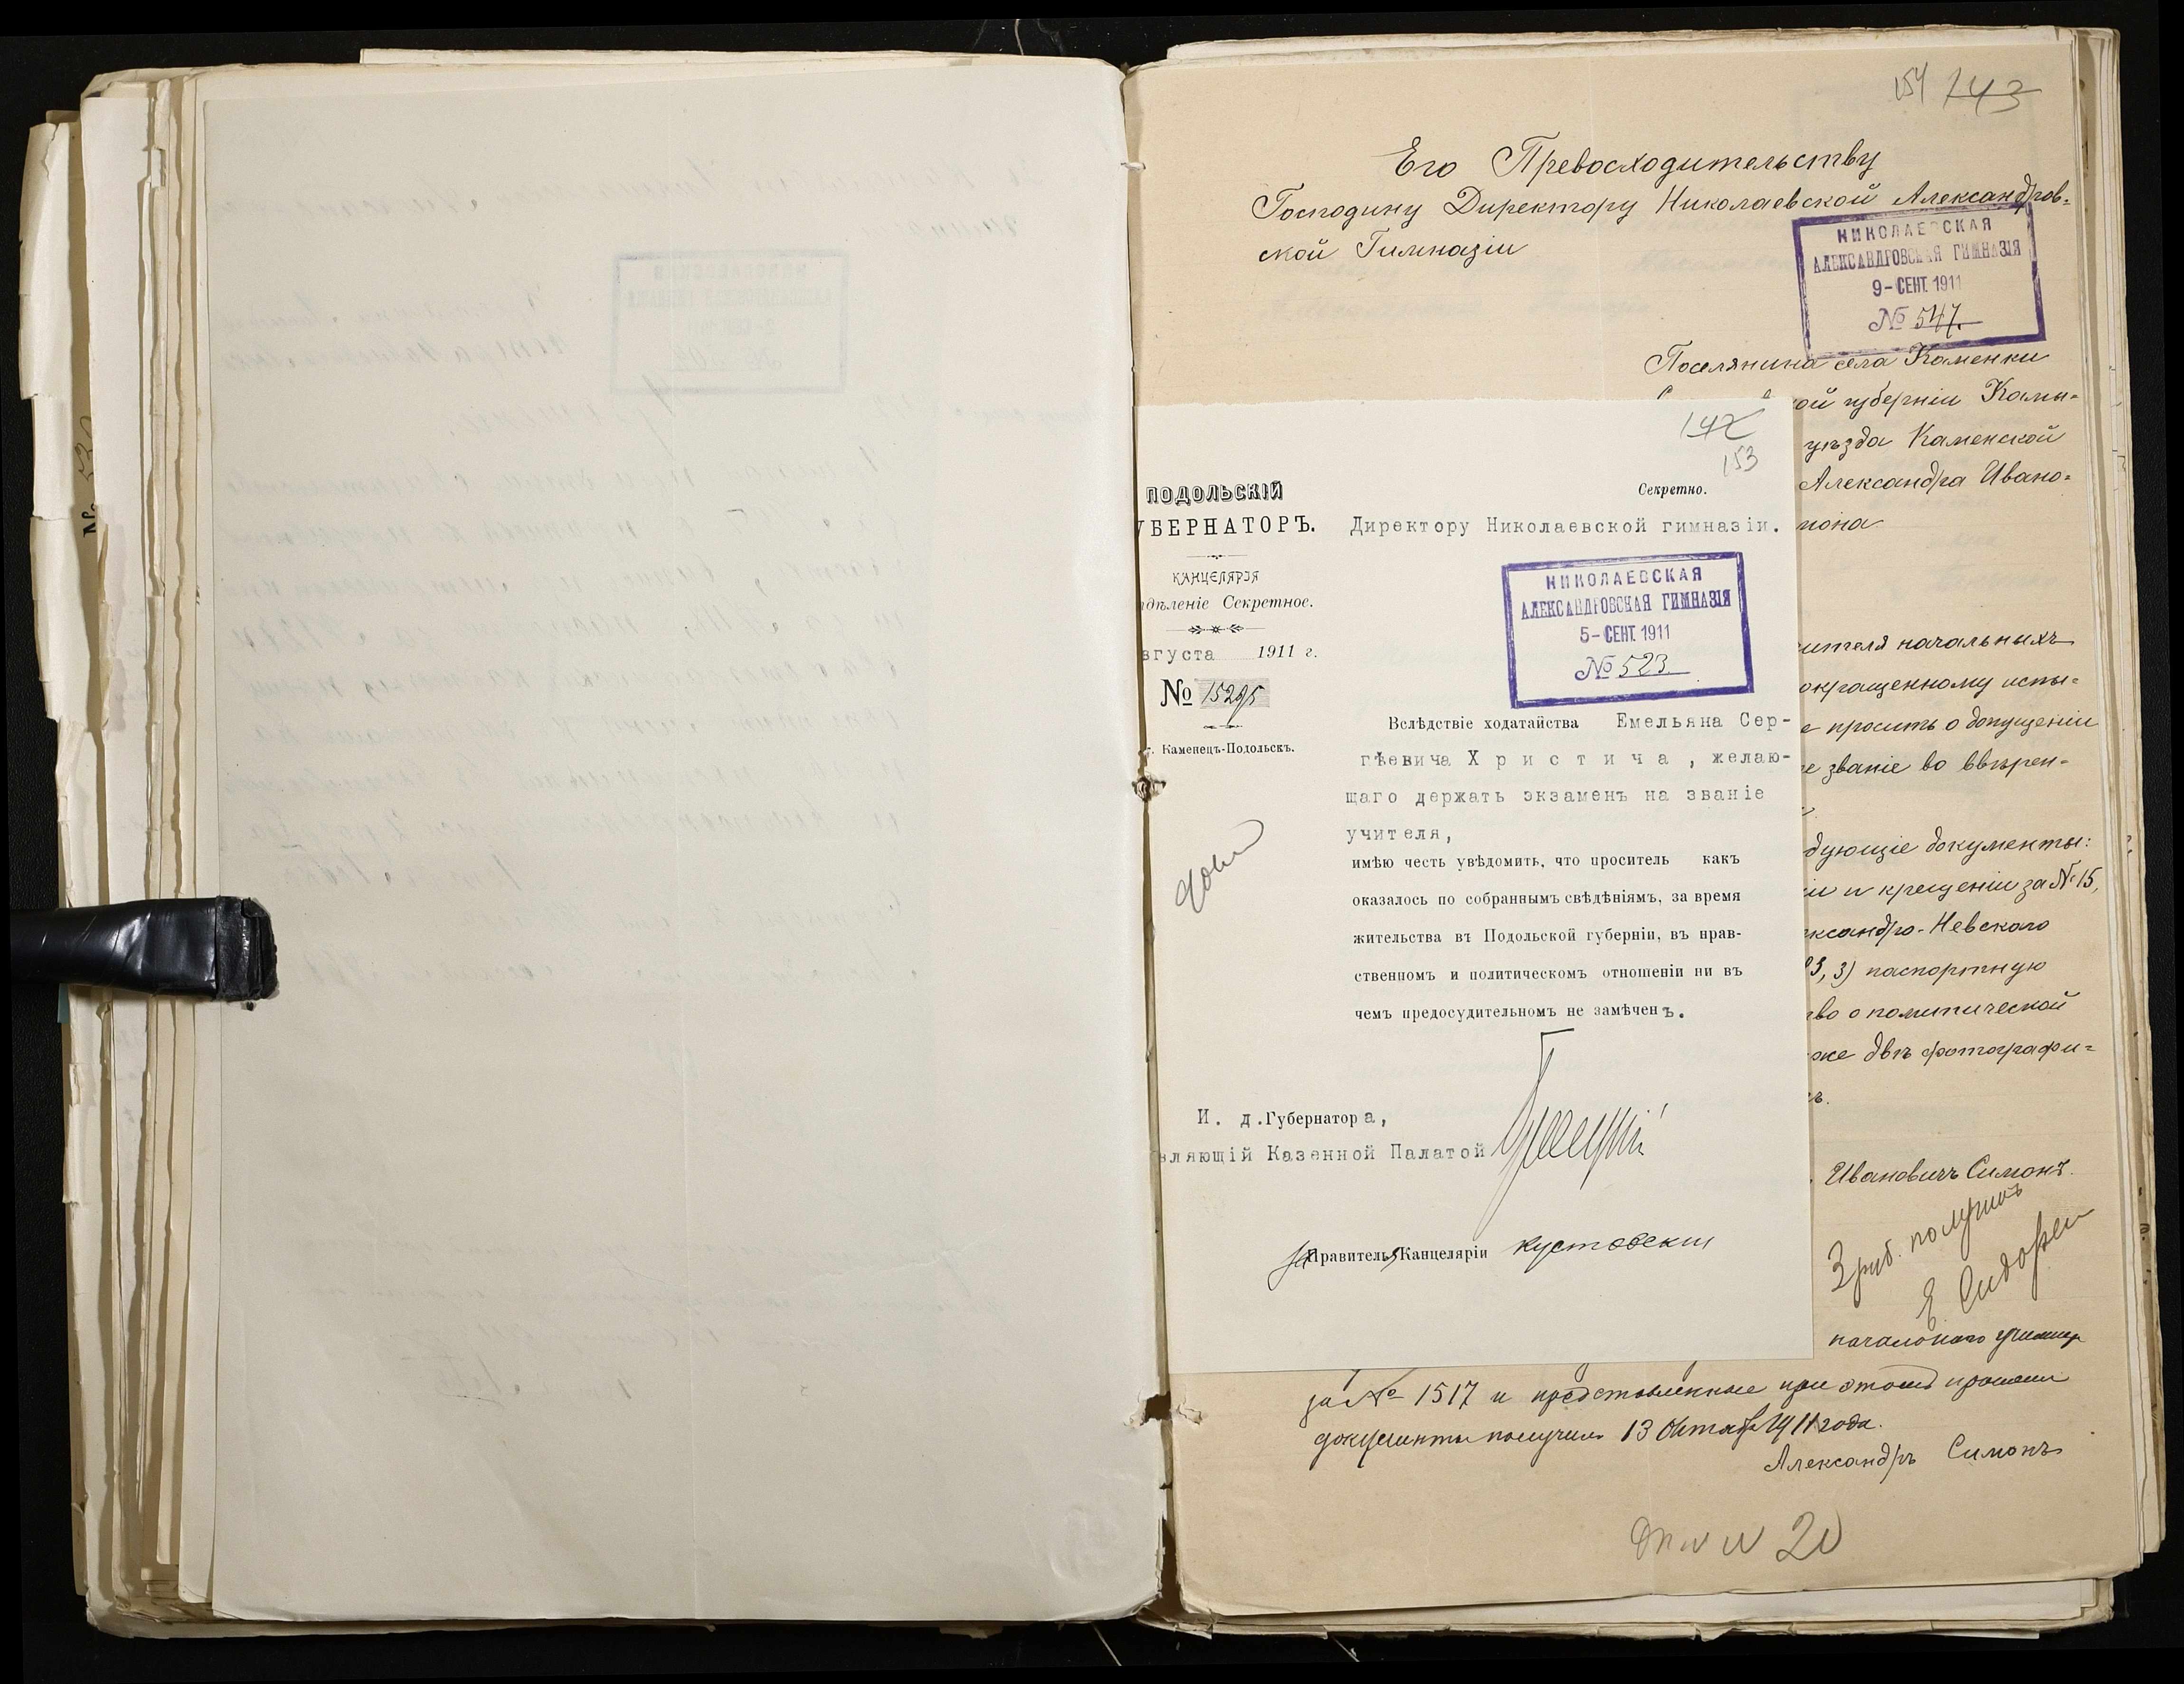 154 143
Его Превосходительству
Господину Директору Николаевской Александров=
ской Гимназіи
НИКОЛАЕВСКАЯ
АЛЕКСАНДРОВСКАЯ ГИМНАЗІЯ
9-СЕНТ. 1911
№ 547.
Поселянина села Каменки
ой губерніи Камы=
уѣзда Каменской
Александра Ивано=
мона
ителя начальныхъ
окращенному испы=
е просить о допущеніи
е званіе во ввѣрен=
дующіе документы:
іи и крещеніи за № 15,
ександро-Невскаго
3, 3) паспортную
тво о политической
же двѣ фотографи=
Ивановичъ Симонъ.
3 руб. получилъ
Е. Сидорен
начальнаго училищ
за № 1517 и представленные при этомъ прошеніи
документы получилъ 13 Октября 1911 года.
Александръ Симонъ
20
142
153
ПОДОЛЬСКІЙ
УБЕРНАТОРЪ.
КАНЦЕЛЯРІЯ
дѣленіе Секретное.
вгуста 1911 г.
№ 15295
г. Каменецъ-Подольскъ.
Секретно.
Директору Николаевской гимназіи.
НИКОЛАЕВСКАЯ
АЛЕКСАНДРОВСКАЯ ГИМНАЗІЯ
5-СЕНТ. 1911
№ 523
Вслѣдствіе ходатайства Емельяна Сер-
гѣевича Христича, желаю-
щаго держать экзаменъ на званіе
учителя,
имѣю честь увѣдомить, что проситель какъ
оказалось по собраннымъ свѣдѣніямъ, за время
жительства въ Подольской губерніи, въ нрав-
ственномъ и политическомъ отношеніи ни въ
чемъ предосудительномъ не замѣченъ.
И. д. Губернатора,
вляющій Казенной Палатой
За Правителя Канцеляріи Кустовскій